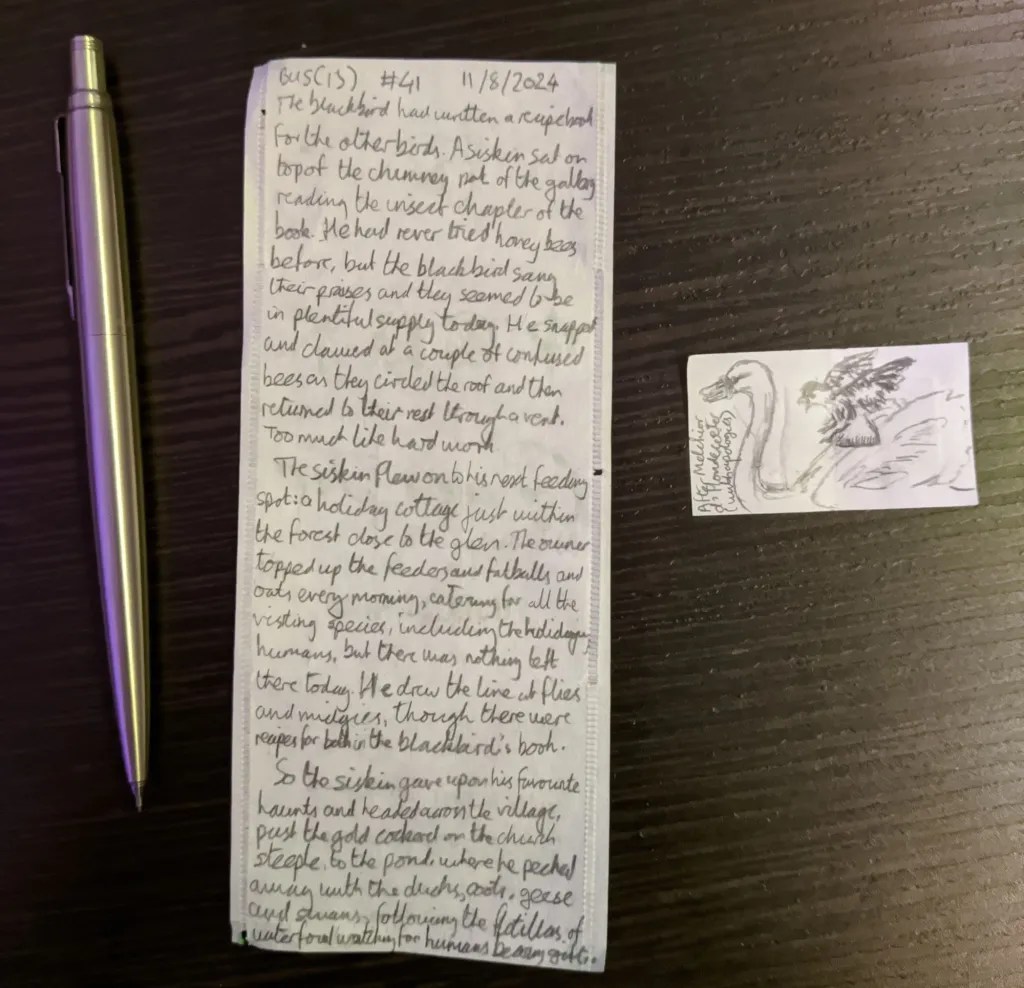 BUS(IS) #41 11/8/2024
The blackbird had written a recipe book
for the other birds. A siskin sat on
top of the chimney pot of the gallery
reading the insect chapter of the
book. He had never tried honey bees
before, but the blackbird sang
their praises and they seemed to be
in plentiful supply today. He snapped
and clawed at a couple of confused
bees as they circled the roof and then
returned to their nest through a vent.
Too much like hard work.
The siskin flew on to his next feeding
spot: a holiday cottage just within
the forest close to the glen. The owner
topped up the feeders and fatballs and
oats every morning, catering for all the
visiting species, including the holidaying
humans, but there was nothing left
there today. He drew the line at flies
and midgies, though there were
recipes for both in the blackbird's book.
So the siskin gave up on his favourite
haunts and headed across the village,
past the gold cockerel on the church
steeple, to the pond, where he pecked
away with the ducks, coots, geese
and swans, following the flotillas of
waterfowl watching for humans bearing gifts.
After Melchior
d'Hondecoeter
(with apologies)